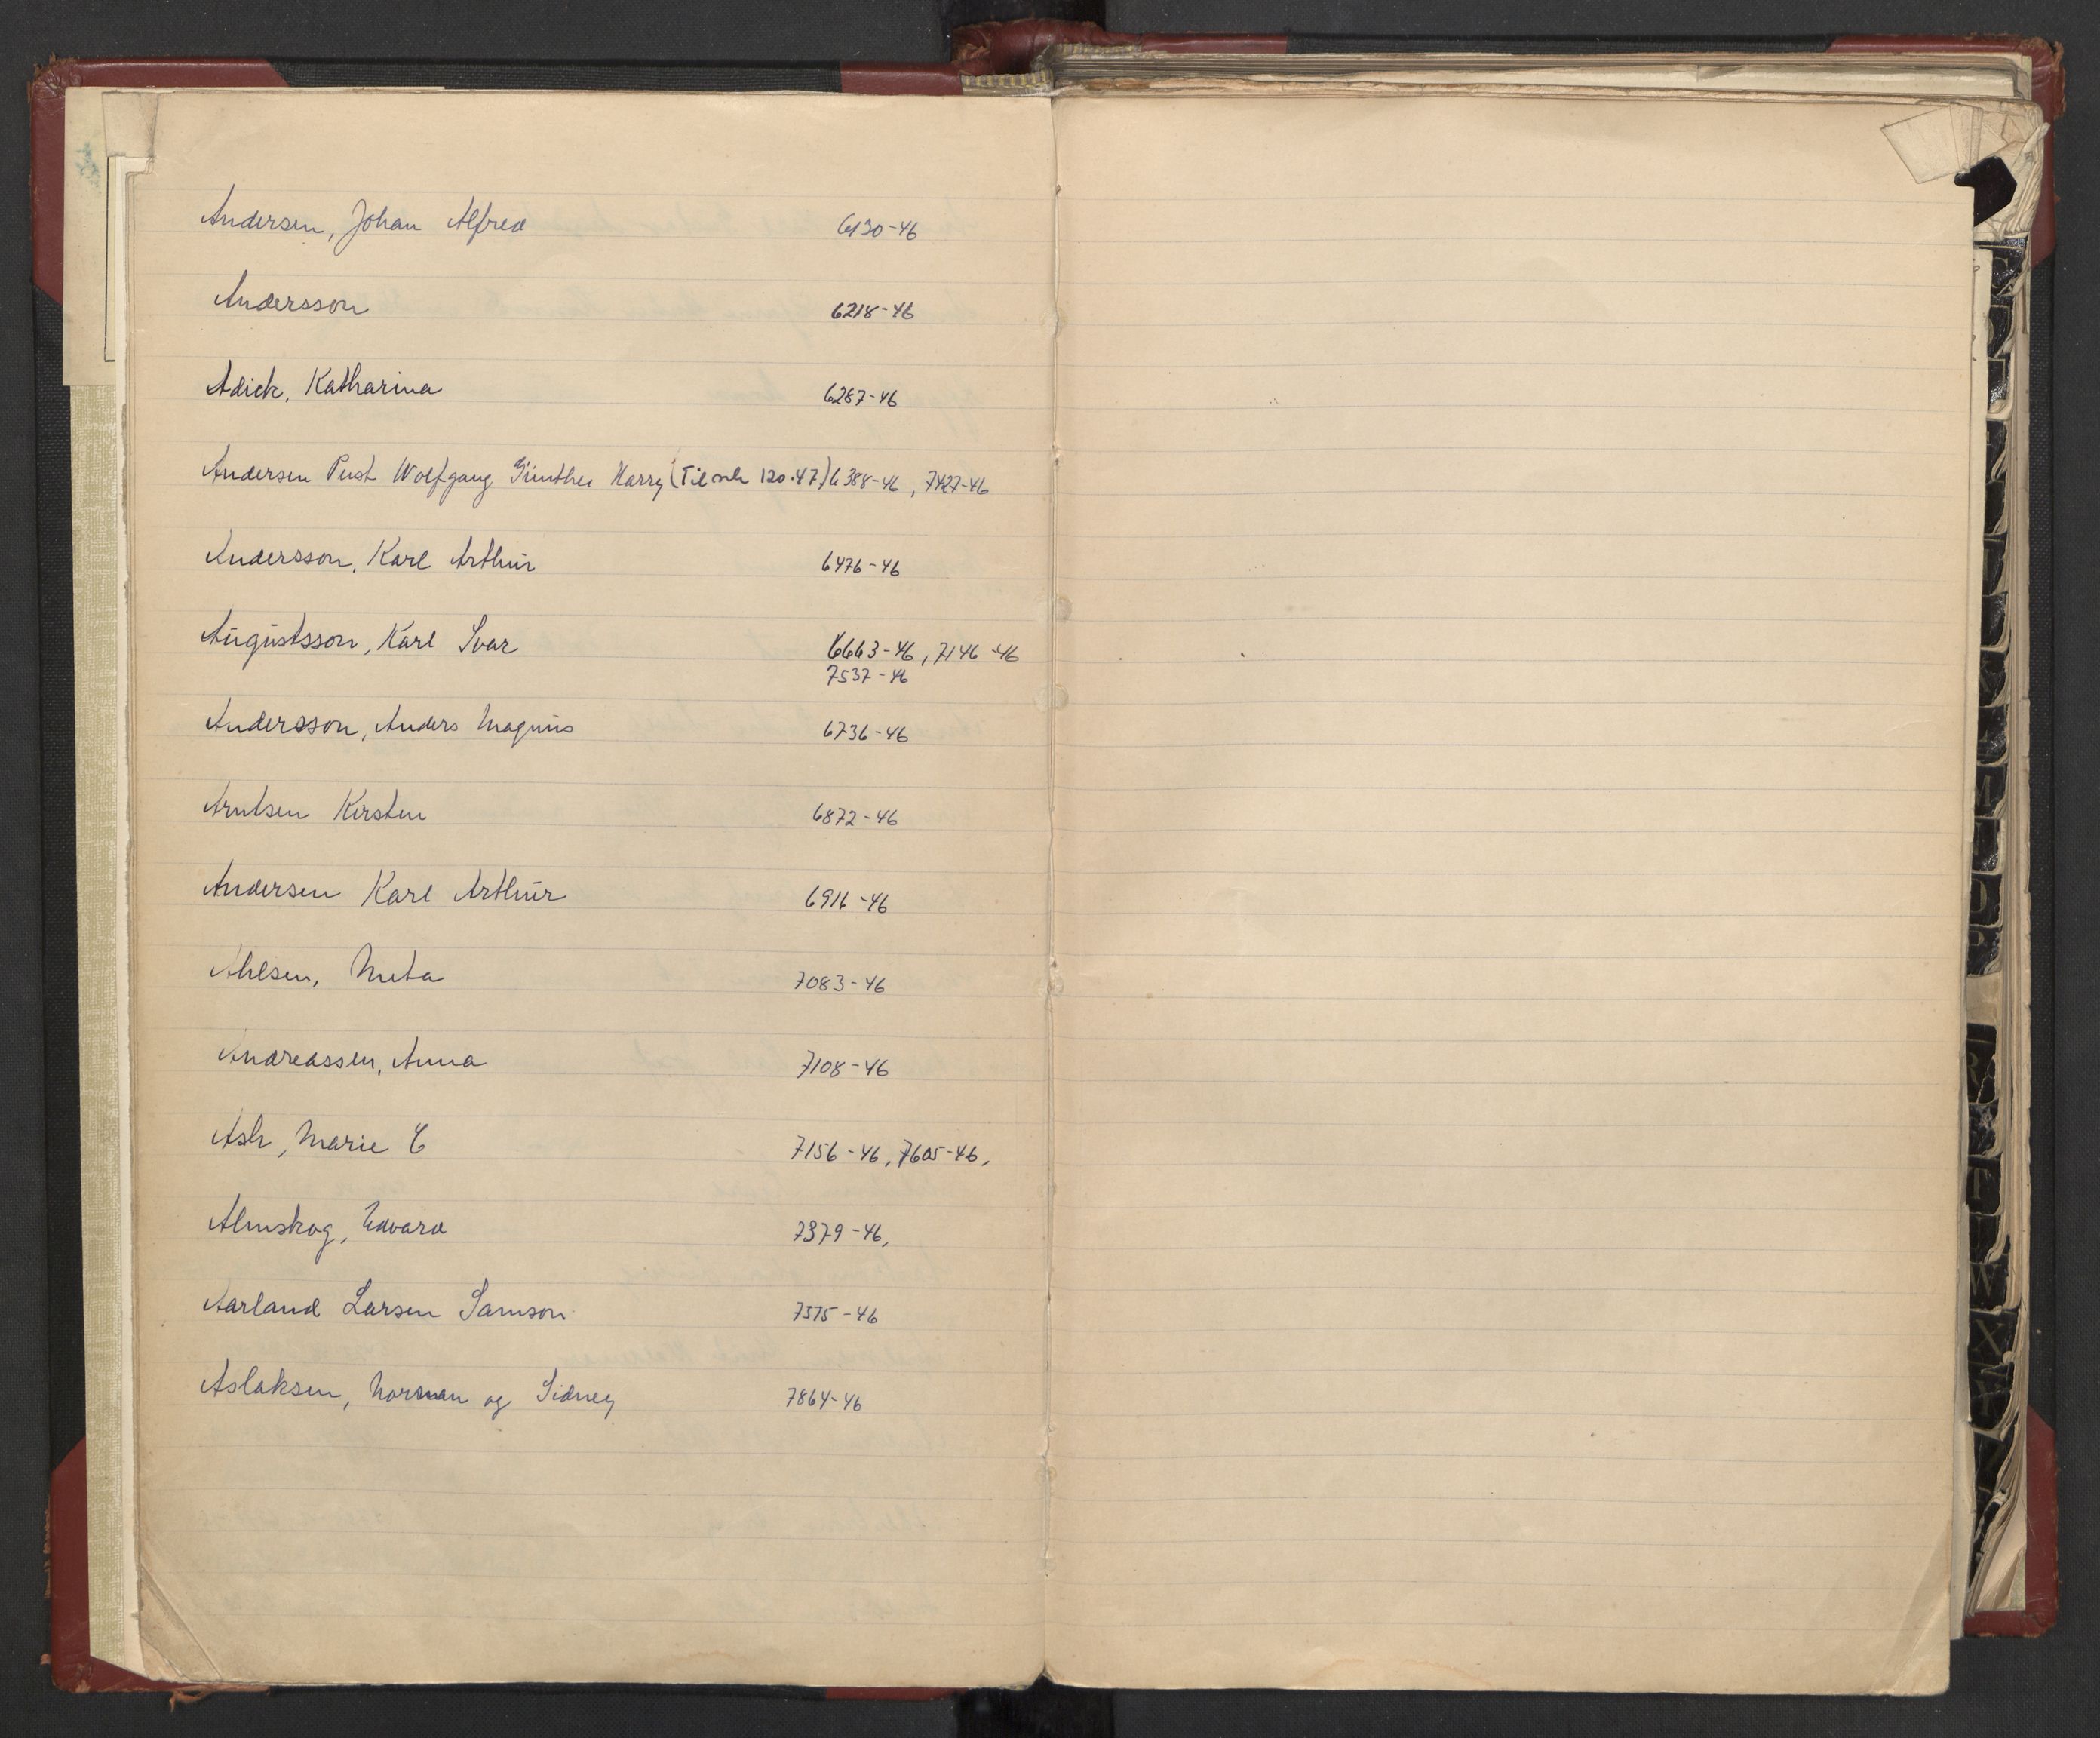 Andersen, Johan Alfred 6130-46
Andersson 6218-46
Adick, Katharina 6287-46
Andersen Pust Wolfgang Günther Harry (Til 120.47) 6388-46, 7427-46
Andersson, Karl Arthur 6476-46
Augustsson, Karl Ivar 6663-46, 7146-46
7537-46
Andersson, Anders Magnus 6736-46
Arntsen Kirsten 6872-46
Andersen Karl Arthur 6916-46
Ahlsen, Meta 7083-46
Andreassen, Anna 7108-46
Ask, Marie E 7156-46, 7605-46,
Almskog, Edvard 7379-46,
Aarland Larsen Samson 7575-46
Aslaksen, Norman og Sidney 7864-46
O
P
R
T
W
X